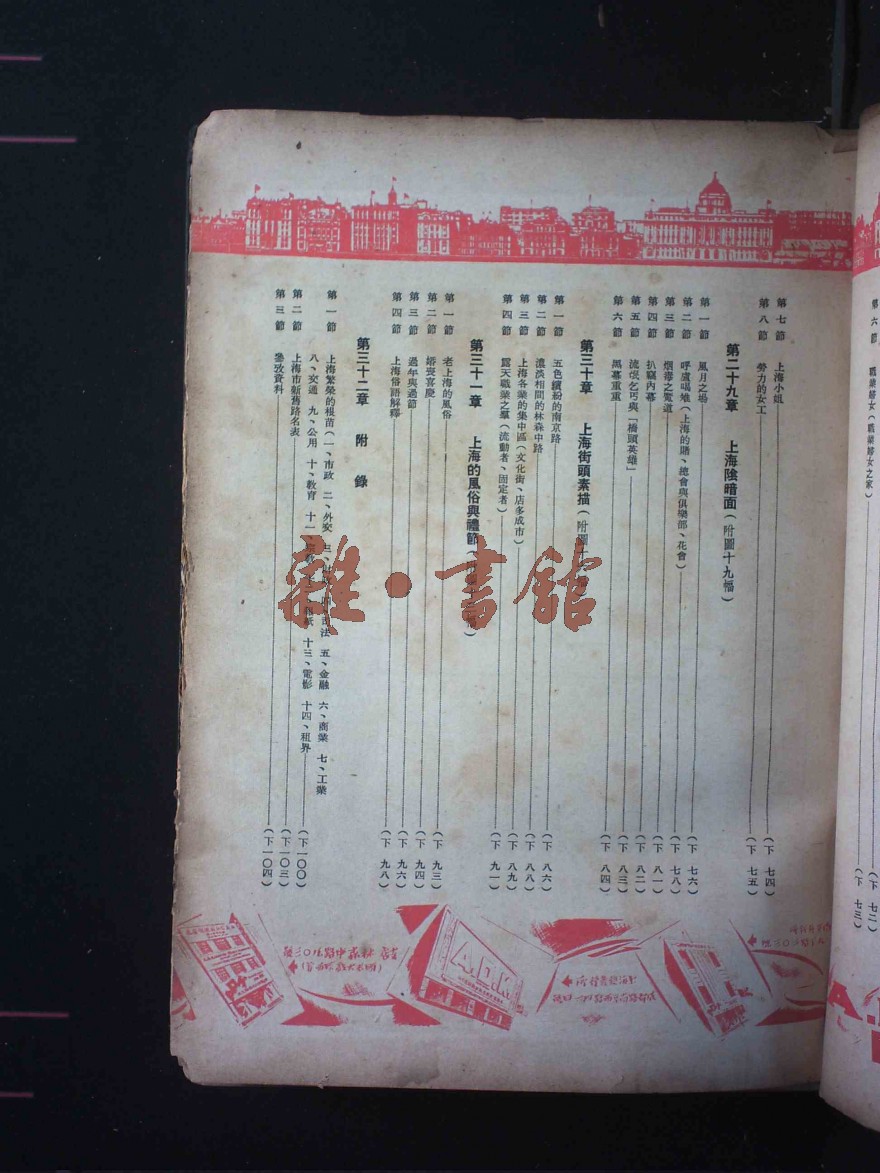 第六節　職業婦女(職業婦女之家)
(下 七二)
(下 七三)
第七節　上海小姐(下 七四)
第八節　勞力的女工(下 七五)
第二十九章　上海陰暗面(附圖十九幅)
第一節　風月之場(下 七六)
第二節　呼盧喝雉(上海的賭、總會與俱樂部、花會)(下 七八)
第三節　烟毒之寃道(下 八一)
第四節　扒竊內幕(下 八二)
第五節　流氓乞丐與「橋頭英雄」(下 八三)
第六節　黑幕重重(下 八四)
第三十章　上海街頭素描(附圖十
第一節　五色繽紛的南京路(下 八六)
第二節　濃淡相間的林森中路(下 八八)
第三節　上海各業的集中區(文化街、店多成市)(下 八九)
第四節　露天職業之羣(流動者、固定者)(下 九一)
第三十一章　上海的風俗與禮節
第一節　老上海的風俗(下 九三)
第二節　婚喪喜慶(下 九四)
第三節　過年與過節(下 九六)
第四節　上海俗語解釋(下 九八)
第三十二章　附錄
第一節　上海繁榮的根苗(一、市政 二、外交 三、 四、司法 五、金融 六、商業 七、工業
八、交通 九、公用 十、教育 十一、 報紙 十三、電影 十四、租界(下一〇〇)
第二節　上海市新舊路名表(下一〇三)
第三節　參攷資料(下一〇四)
雜·書舘
A.D.K